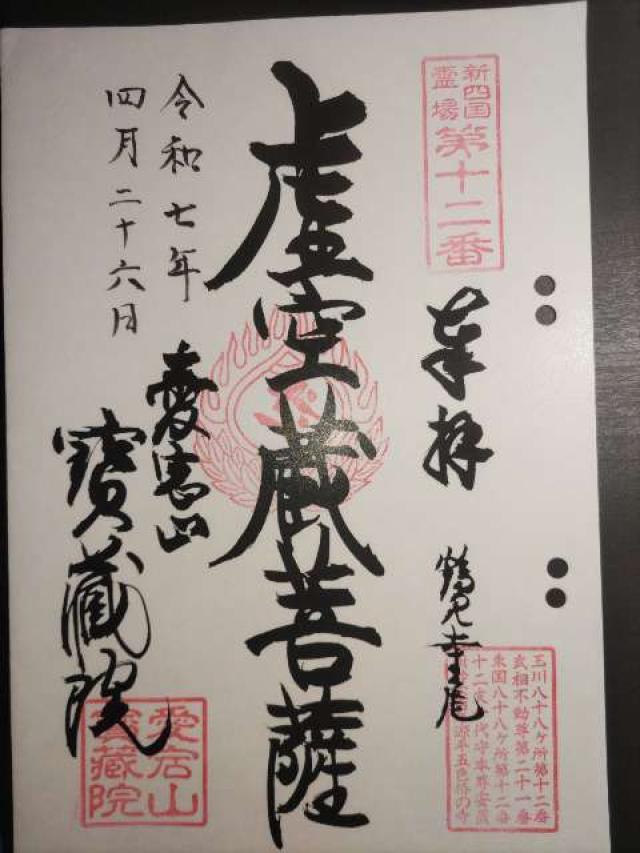 新四国
霊場
第十二番
奉拝
鶴見寺尾
玉川八十八ケ所第十二番
武相不動尊第二十一番
東国八十八ケ所第十二番
十二支一代守本尊安置
源平五色椿の寺
虚空蔵菩薩
令和七年
四月二十六日
愛宕山
寶蔵院
愛宕山
寳蔵院